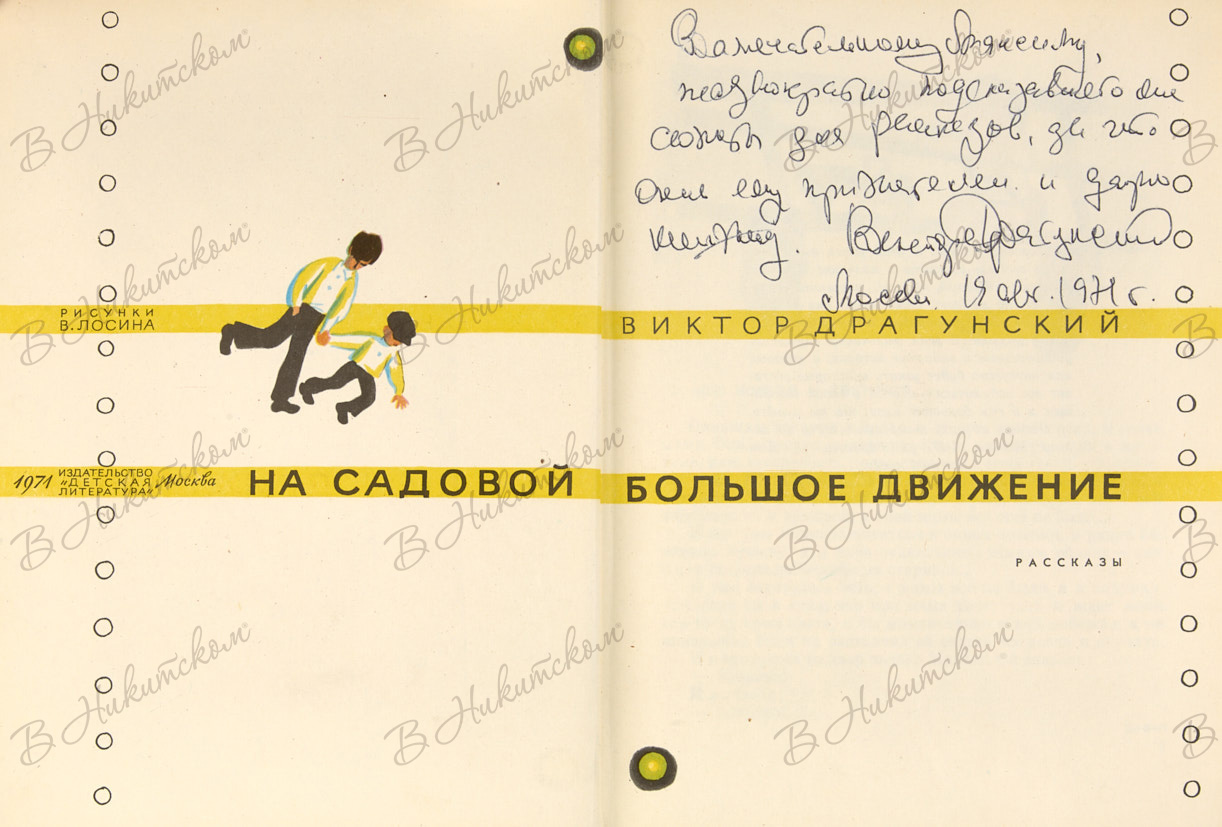 Замечательному
неоднократно подсказавшего мне
сюжеты для рассказов, за что
ему признателен и дарю
книжку. Виктор Драгунский
Москва 19 авг. 1971 г.
РИСУНКИ
В. ЛОСИНА
ВИКТОР ДРАГУНСКИЙ
1971 ИЗДАТЕЛЬСТВО «ДЕТСКАЯ ЛИТЕРАТУРА» Москва
НА САДОВОЙ БОЛЬШОЕ ДВИЖЕНИЕ
РАССКАЗЫ
В Никитском